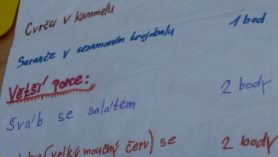 Cvrčci v karamelu 1 bod
Saranče v sezamovém trojobalu
Větší porce:
Šváb se salátem 2 body
(velký moučný červ) se 2 body